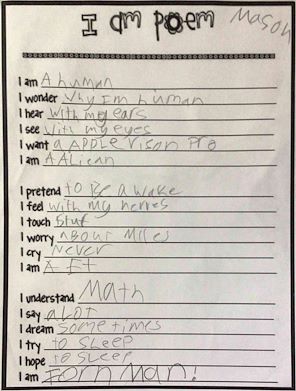 I am poem Mason
I am A human
I wonder Why Im human
I hear With my ears
I see With my eyes
I want a APPLe Vison Pro
I am A ALiean
I pretend to Be a wake
I feel with my nerves
I touch Stuf
I worry ABOUt MLes
I cry Never
I am A Ft
I understand Math
I say aLOt
I dream Sometimes
I try to SLeep
I hope to SLeep
I am Iorn Man!